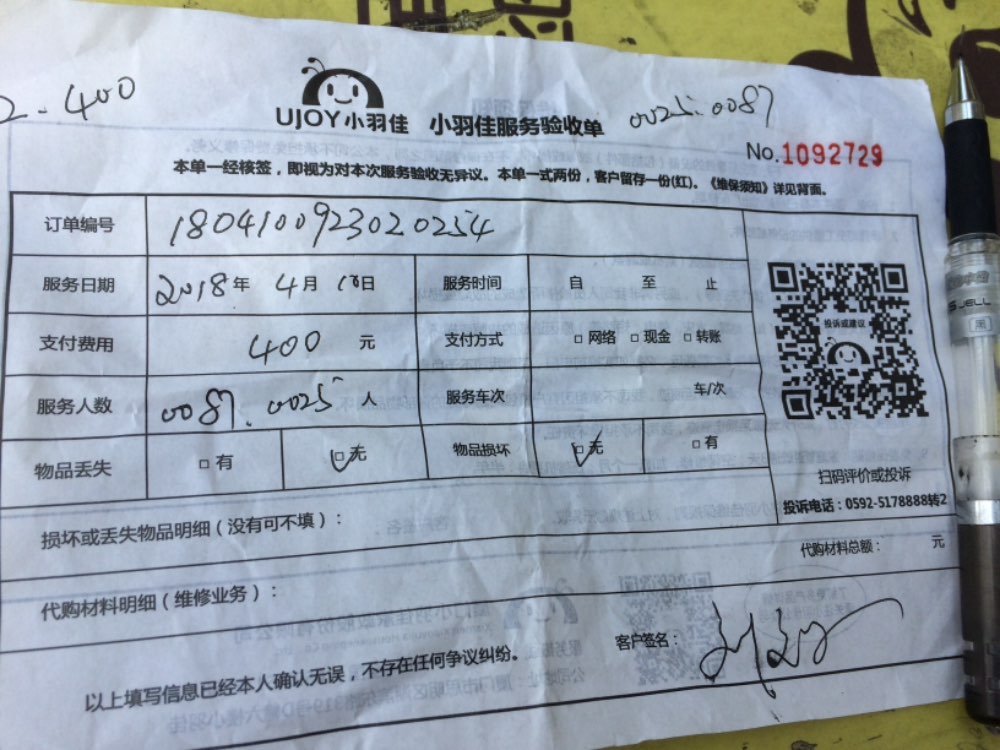 2.400
UJOY小羽佳 小羽佳服务验收单 0025.0087
No.1092729
本单一经核签，即视为对本次服务验收无异议。本单一式两份，客户留存一份(红)。《维保须知》详见背面。
订单编号 1804100923020254
服务日期 2018年 4月 10日 服务时间 自 至 止
支付费用 400 元 支付方式 □网络 □现金 □转账
投诉或建议
服务人数 0087.0025人 服务车次 车/次
物品丢失 □有 □无 物品损坏 □无 □有
扫码评价或投诉
投诉电话：0592-5178888转2
损坏或丢失物品明细（没有可不填）：
代购材料总额： 元
代购材料明细（维修业务）：
客户签名：
以上填写信息已经本人确认无误，不存在任何争议纠纷。